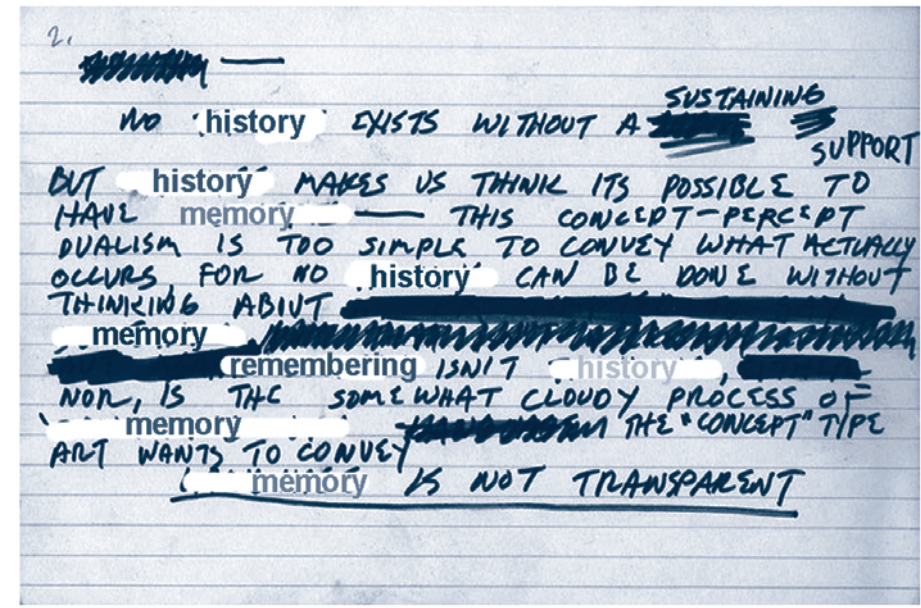 2.
SUSTAINING
NO history EXISTS WITHOUT A
SUPPORT
BUT history MAKES US THINK ITS POSSIBLE TO
HAVE memory — THIS CONCEPT-PERCEPT
DUALISM IS TOO SIMPLE TO CONVEY WHAT ACTUALLY
OCCURS, FOR NO history CAN BE DONE WITHOUT
THINKING ABOUT
memory
remembering ISN'T history,
NOR, IS THE SOMEWHAT CLOUDY PROCESS OF
memory THE "CONCEPT" TYPE
ART WANTS TO CONVEY
memory IS NOT TRANSPARENT